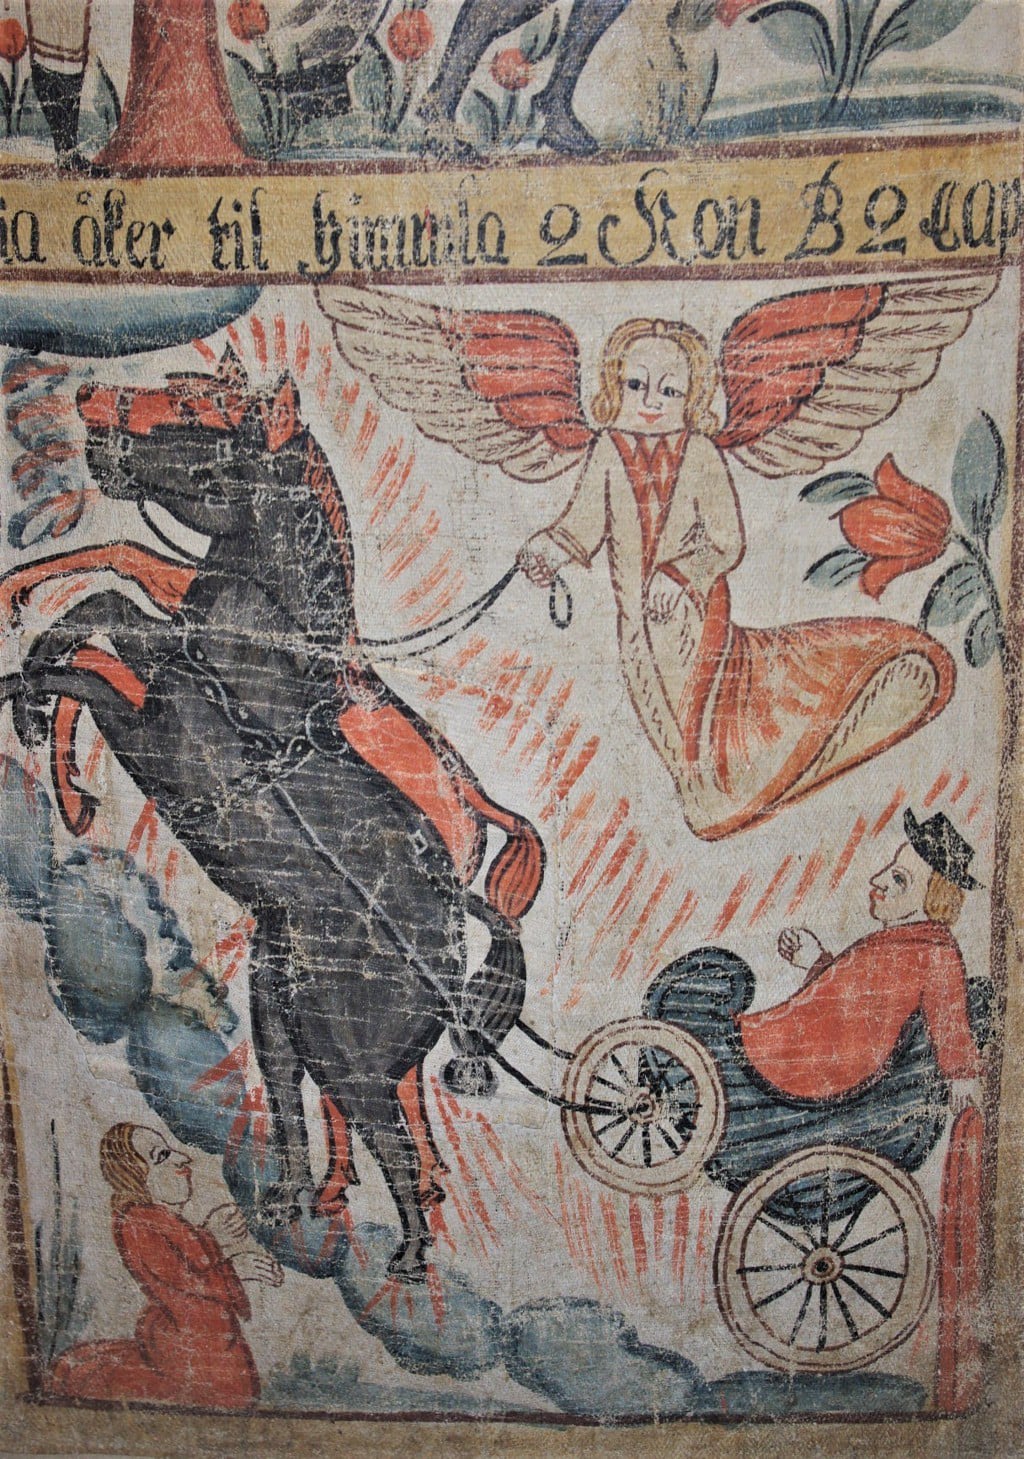 ia åker til himmla 2 Kon B 2 Cap